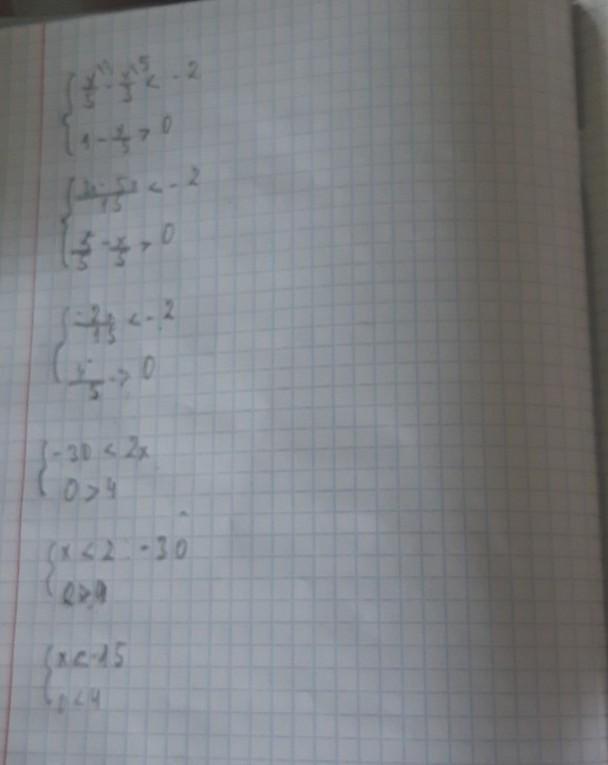 x/5 - x/3 < -2
1 - x/5 > 0
3x - 5x/15 < -2
5/5 - x/5 > 0
-2x/15 < -2
> 0
-30 < 2x
0 > 4
x < 2 -30
x < -15
< 4